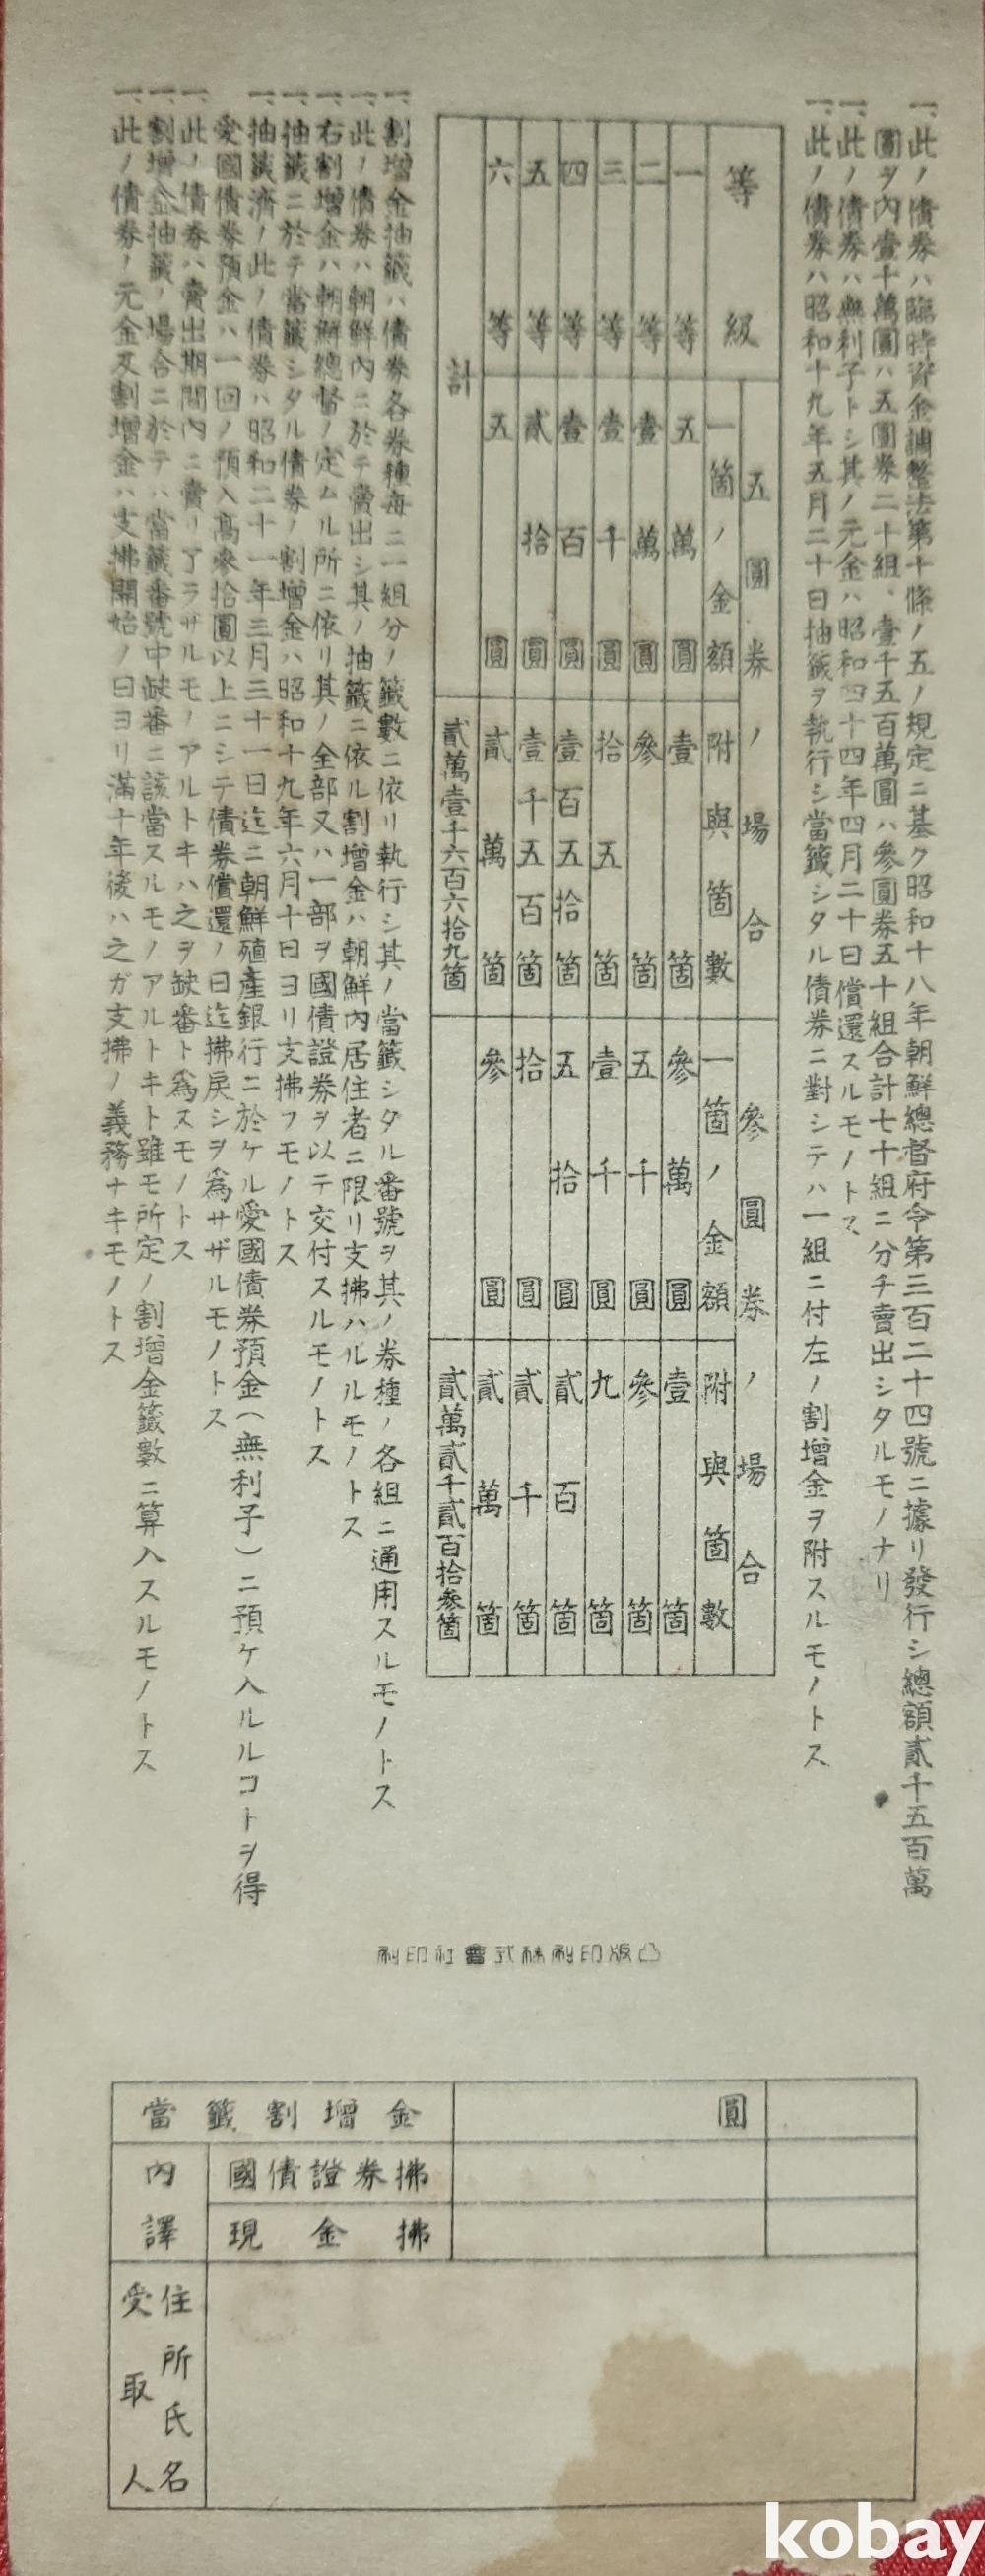 一、此ノ債券ハ臨時資金調整法第十條ノ五ノ規定ニ基ク昭和十八年朝鮮總督府令第三百二十四號ニ據リ發行シ總額貳千五百萬
圓ヲ內壹千萬圓ハ五圓券二十組、壹千五百萬圓ハ參圓券五十組合計七十組ニ分チ賣出シタルモノナリ
一、此ノ債券ハ無利子トシ其ノ元金ハ昭和四十四年四月二十日償還スルモノトス
一、此ノ債券ハ昭和十九年五月二十日抽籤ヲ執行シ當籤シタル債券ニ對シテハ一組ニ付左ノ割增金ヲ附スルモノトス
等級
五圓券ノ場合
參圓券ノ場合
一箇ノ金額
附與箇數
一箇ノ金額
附與箇數
一等 五萬圓 壹箇 參萬圓 壹箇
二等 壹萬圓 參箇 五千圓 參箇
三等 壹千圓 拾五箇 壹千圓 九箇
四等 壹百圓 壹百五拾箇 五拾圓 貳百箇
五等 貳拾圓 壹千五百箇 拾圓 貳千箇
六等 五圓 貳萬箇 參圓 貳萬箇
計 貳萬壹千六百六拾九箇 貳萬貳千貳百拾參箇
一、割增金抽籤ハ債券各券種每ニ一組分ノ籤數ニ依リ執行シ其ノ當籤シタル番號ヲ其ノ券種ノ各組ニ通用スルモノトス
一、此ノ債券ハ朝鮮內ニ於テ賣出シ其ノ抽籤ニ依ル割增金ハ朝鮮內居住者ニ限リ支拂ハルルモノトス
一、右割增金ハ朝鮮總督ノ定ムル所ニ依リ其ノ全部又ハ一部ヲ國債證券ヲ以テ交付スルモノトス
一、抽籤ニ於テ當籤シタル債券ノ割增金ハ昭和十九年六月十日ヨリ支拂フモノトス
一、抽籤濟ノ此ノ債券ハ昭和二十一年三月三十一日迄ニ朝鮮殖產銀行ニ於ケル愛國債券預金(無利子)ニ預ケ入ルルコトヲ得
愛國債券預金ハ一回ノ預入高參拾圓以上ニシテ債券償還ノ日迄拂戾シヲ爲サザルモノトス
一、此ノ債券ハ賣出期間內ニ賣リ了ラザルモノアルトキハ之ヲ缺番ト爲スモノトス
一、割增金抽籤ノ場合ニ於テハ當籤番號中缺番ニ該當スルモノアルトキト雖モ所定ノ割增金籤數ニ算入スルモノトス
一、此ノ債券ノ元金及割增金ハ支拂開始ノ日ヨリ滿十年後ハ之ガ支拂ノ義務ナキモノトス
刷印社會式株刷印版凸
當籤割增金 圓
內譯 國債證券拂
現金拂
受取人 住所氏名
kobay